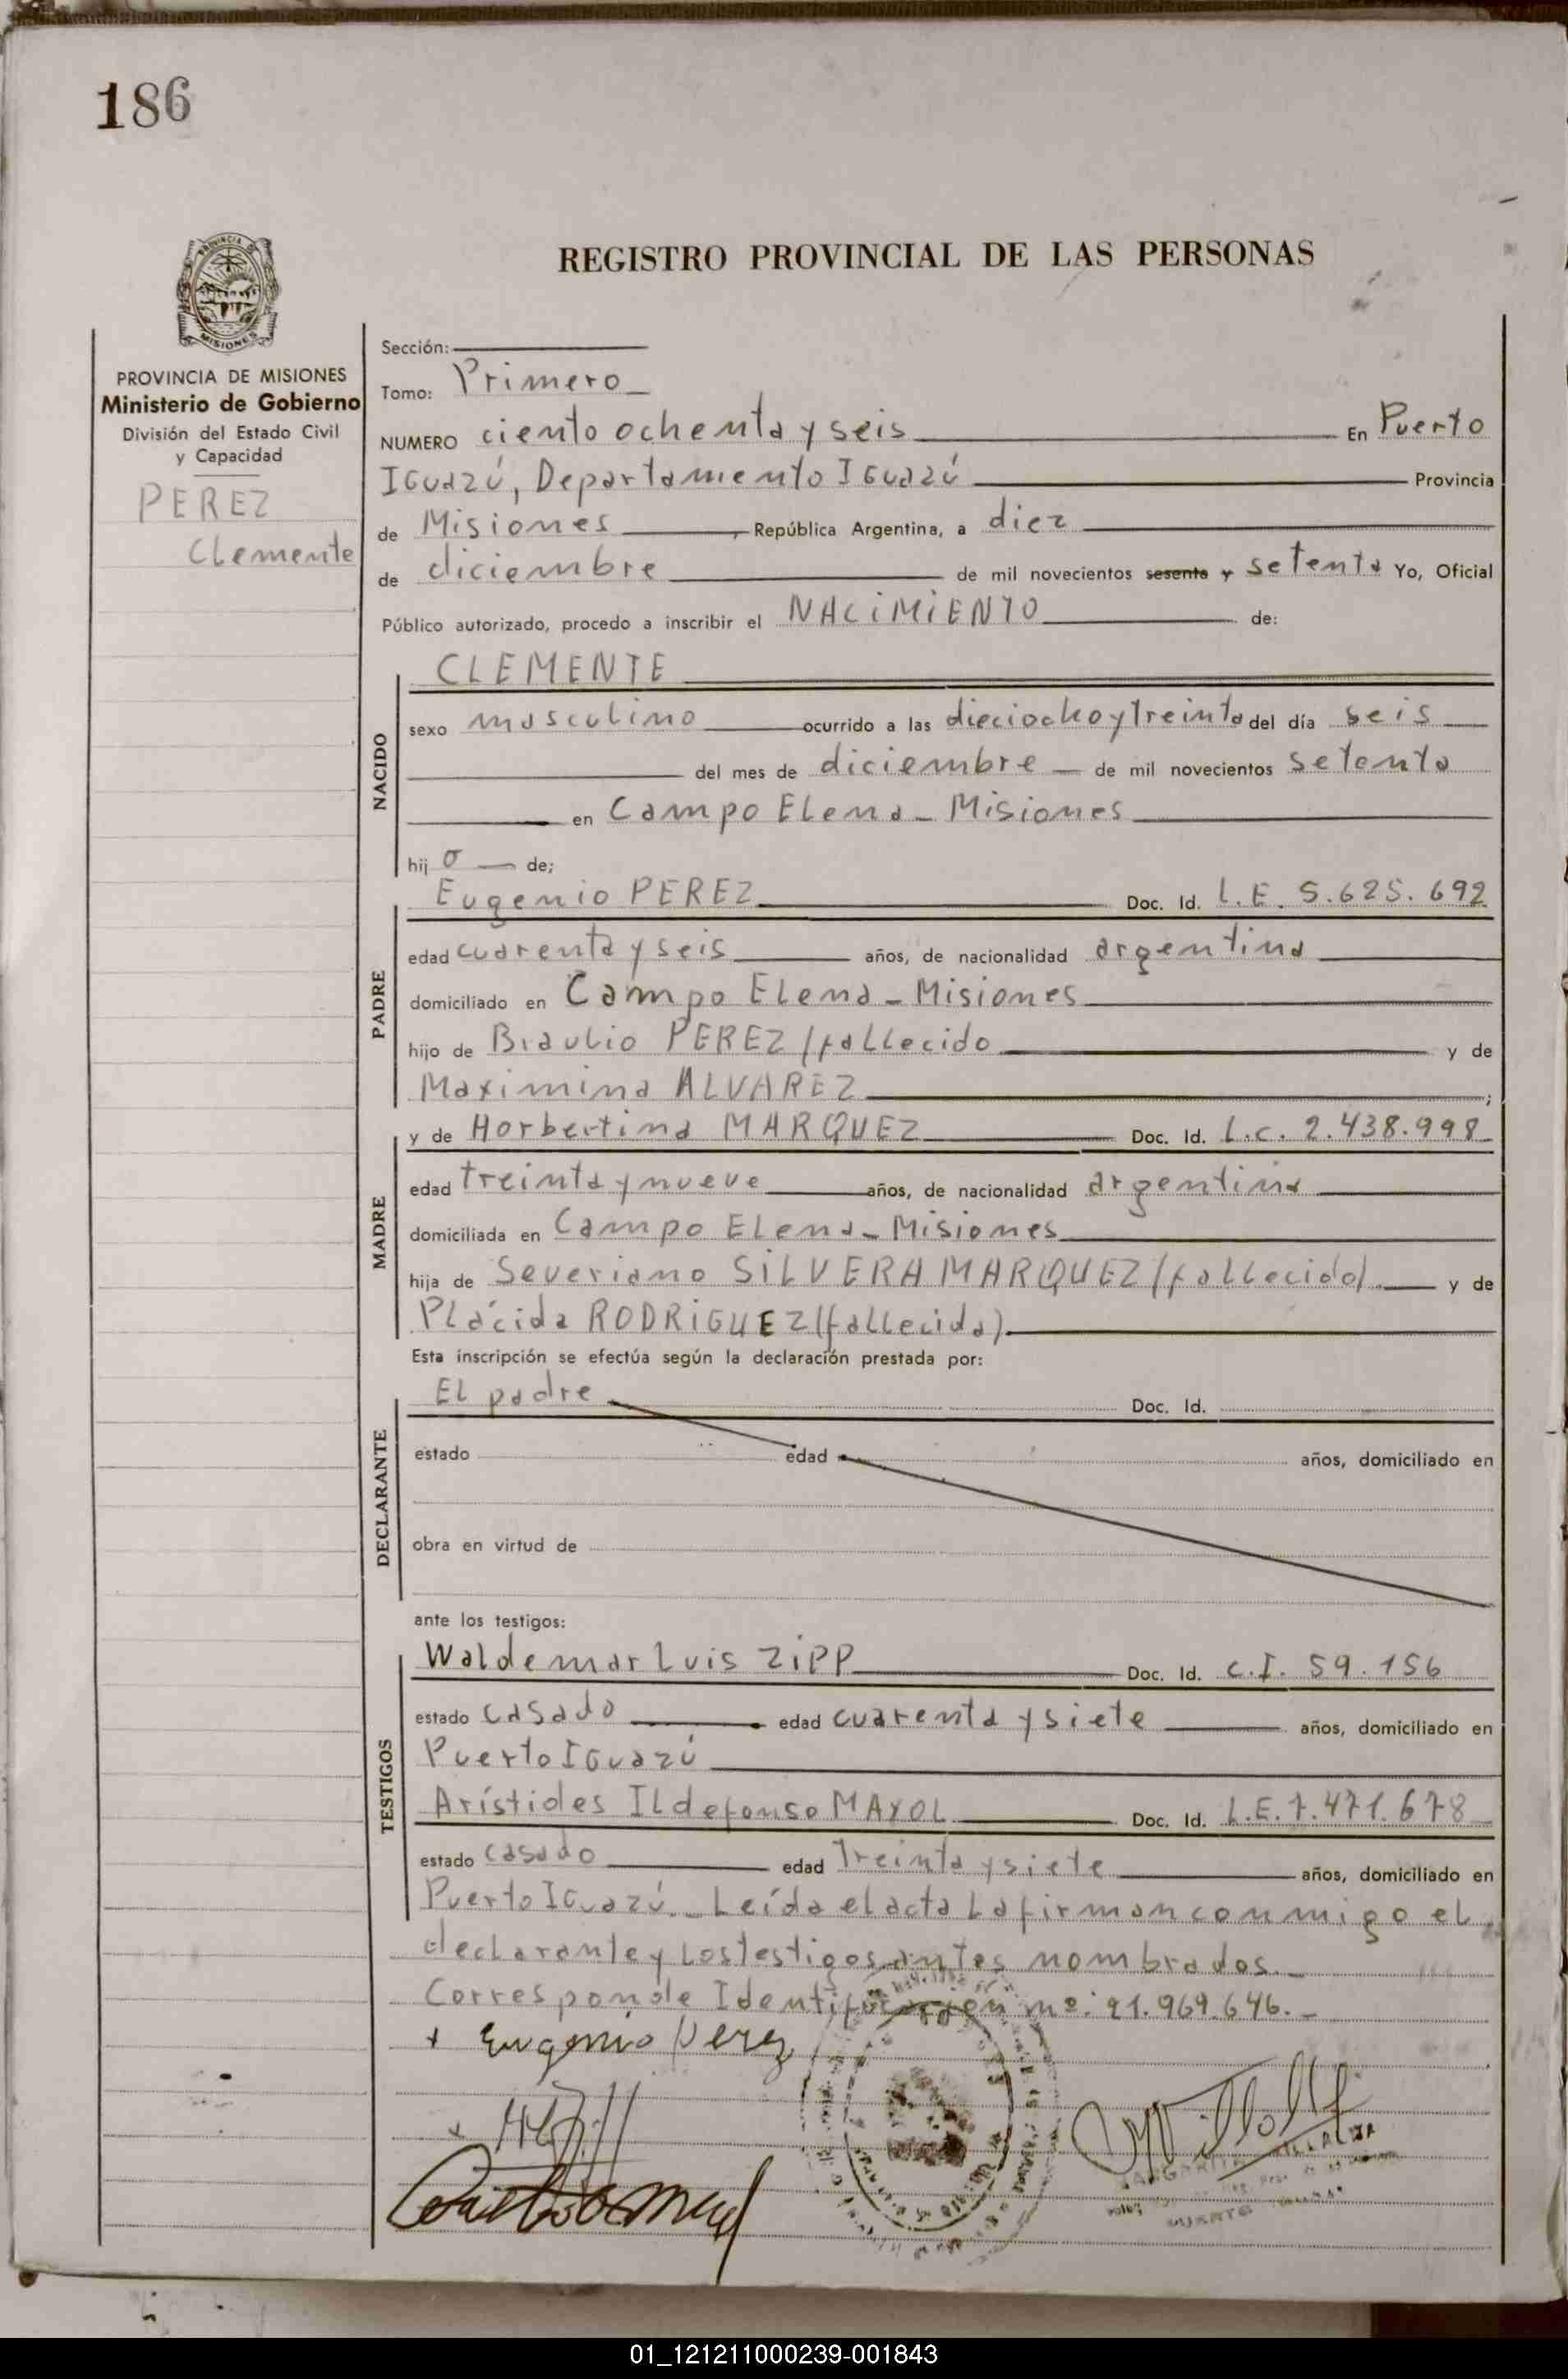 186
PROVINCIA DE MISIONES
REGISTRO PROVINCIAL DE LAS PERSONAS
PROVINCIA DE MISIONES
Ministerio de Gobierno
División del Estado Civil
y Capacidad
PEREZ
Clemente
Sección:
Tomo: Primero
NUMERO ciento ochenta y seis En Puerto
Iguazú, Departamento Iguazú Provincia
de Misiones, República Argentina, a diez
de diciembre de mil novecientos sesenta y setenta Yo, Oficial
Público autorizado, procedo a inscribir el NACIMIENTO de:
NACIDO
CLEMENTE
sexo masculino ocurrido a las dieciocho y treinta del día seis
del mes de diciembre de mil novecientos setenta
en Campo Elena - Misiones
hijo de;
PADRE
Eugenio PEREZ Doc. Id. L.E. 5.625.692
edad cuarenta y seis años, de nacionalidad argentina
domiciliado en Campo Elena - Misiones
hijo de Braulio PEREZ /fallecido y de
Maximina ALVAREZ;
MADRE
y de Horbertina MARQUEZ Doc. Id. L.C. 2.438.998
edad treinta y nueve años, de nacionalidad argentina
domiciliada en Campo Elena - Misiones
hija de Severiano SILVERA MARQUEZ (fallecido) y de
Plácida RODRIGUEZ (fallecida).
Esta inscripción se efectúa según la declaración prestada por:
DECLARANTE
El padre Doc. Id.
estado edad años, domiciliado en
obra en virtud de
ante los testigos:
TESTIGOS
Waldemar Luis ZIPP Doc. Id. C.I. 59.156
estado casado edad cuarenta y siete años, domiciliado en
Puerto Iguazú
Arístides Ildefonso MAYOL Doc. Id. L.E. 7.471.678
estado casado edad treinta y siete años, domiciliado en
Puerto Iguazú.- Leída el acta la firman conmigo el
declarante y los testigos antes nombrados.-
Corresponde Identificación nº: 21.969.646.-
x Eugenio Perez
01_121211000239-001843